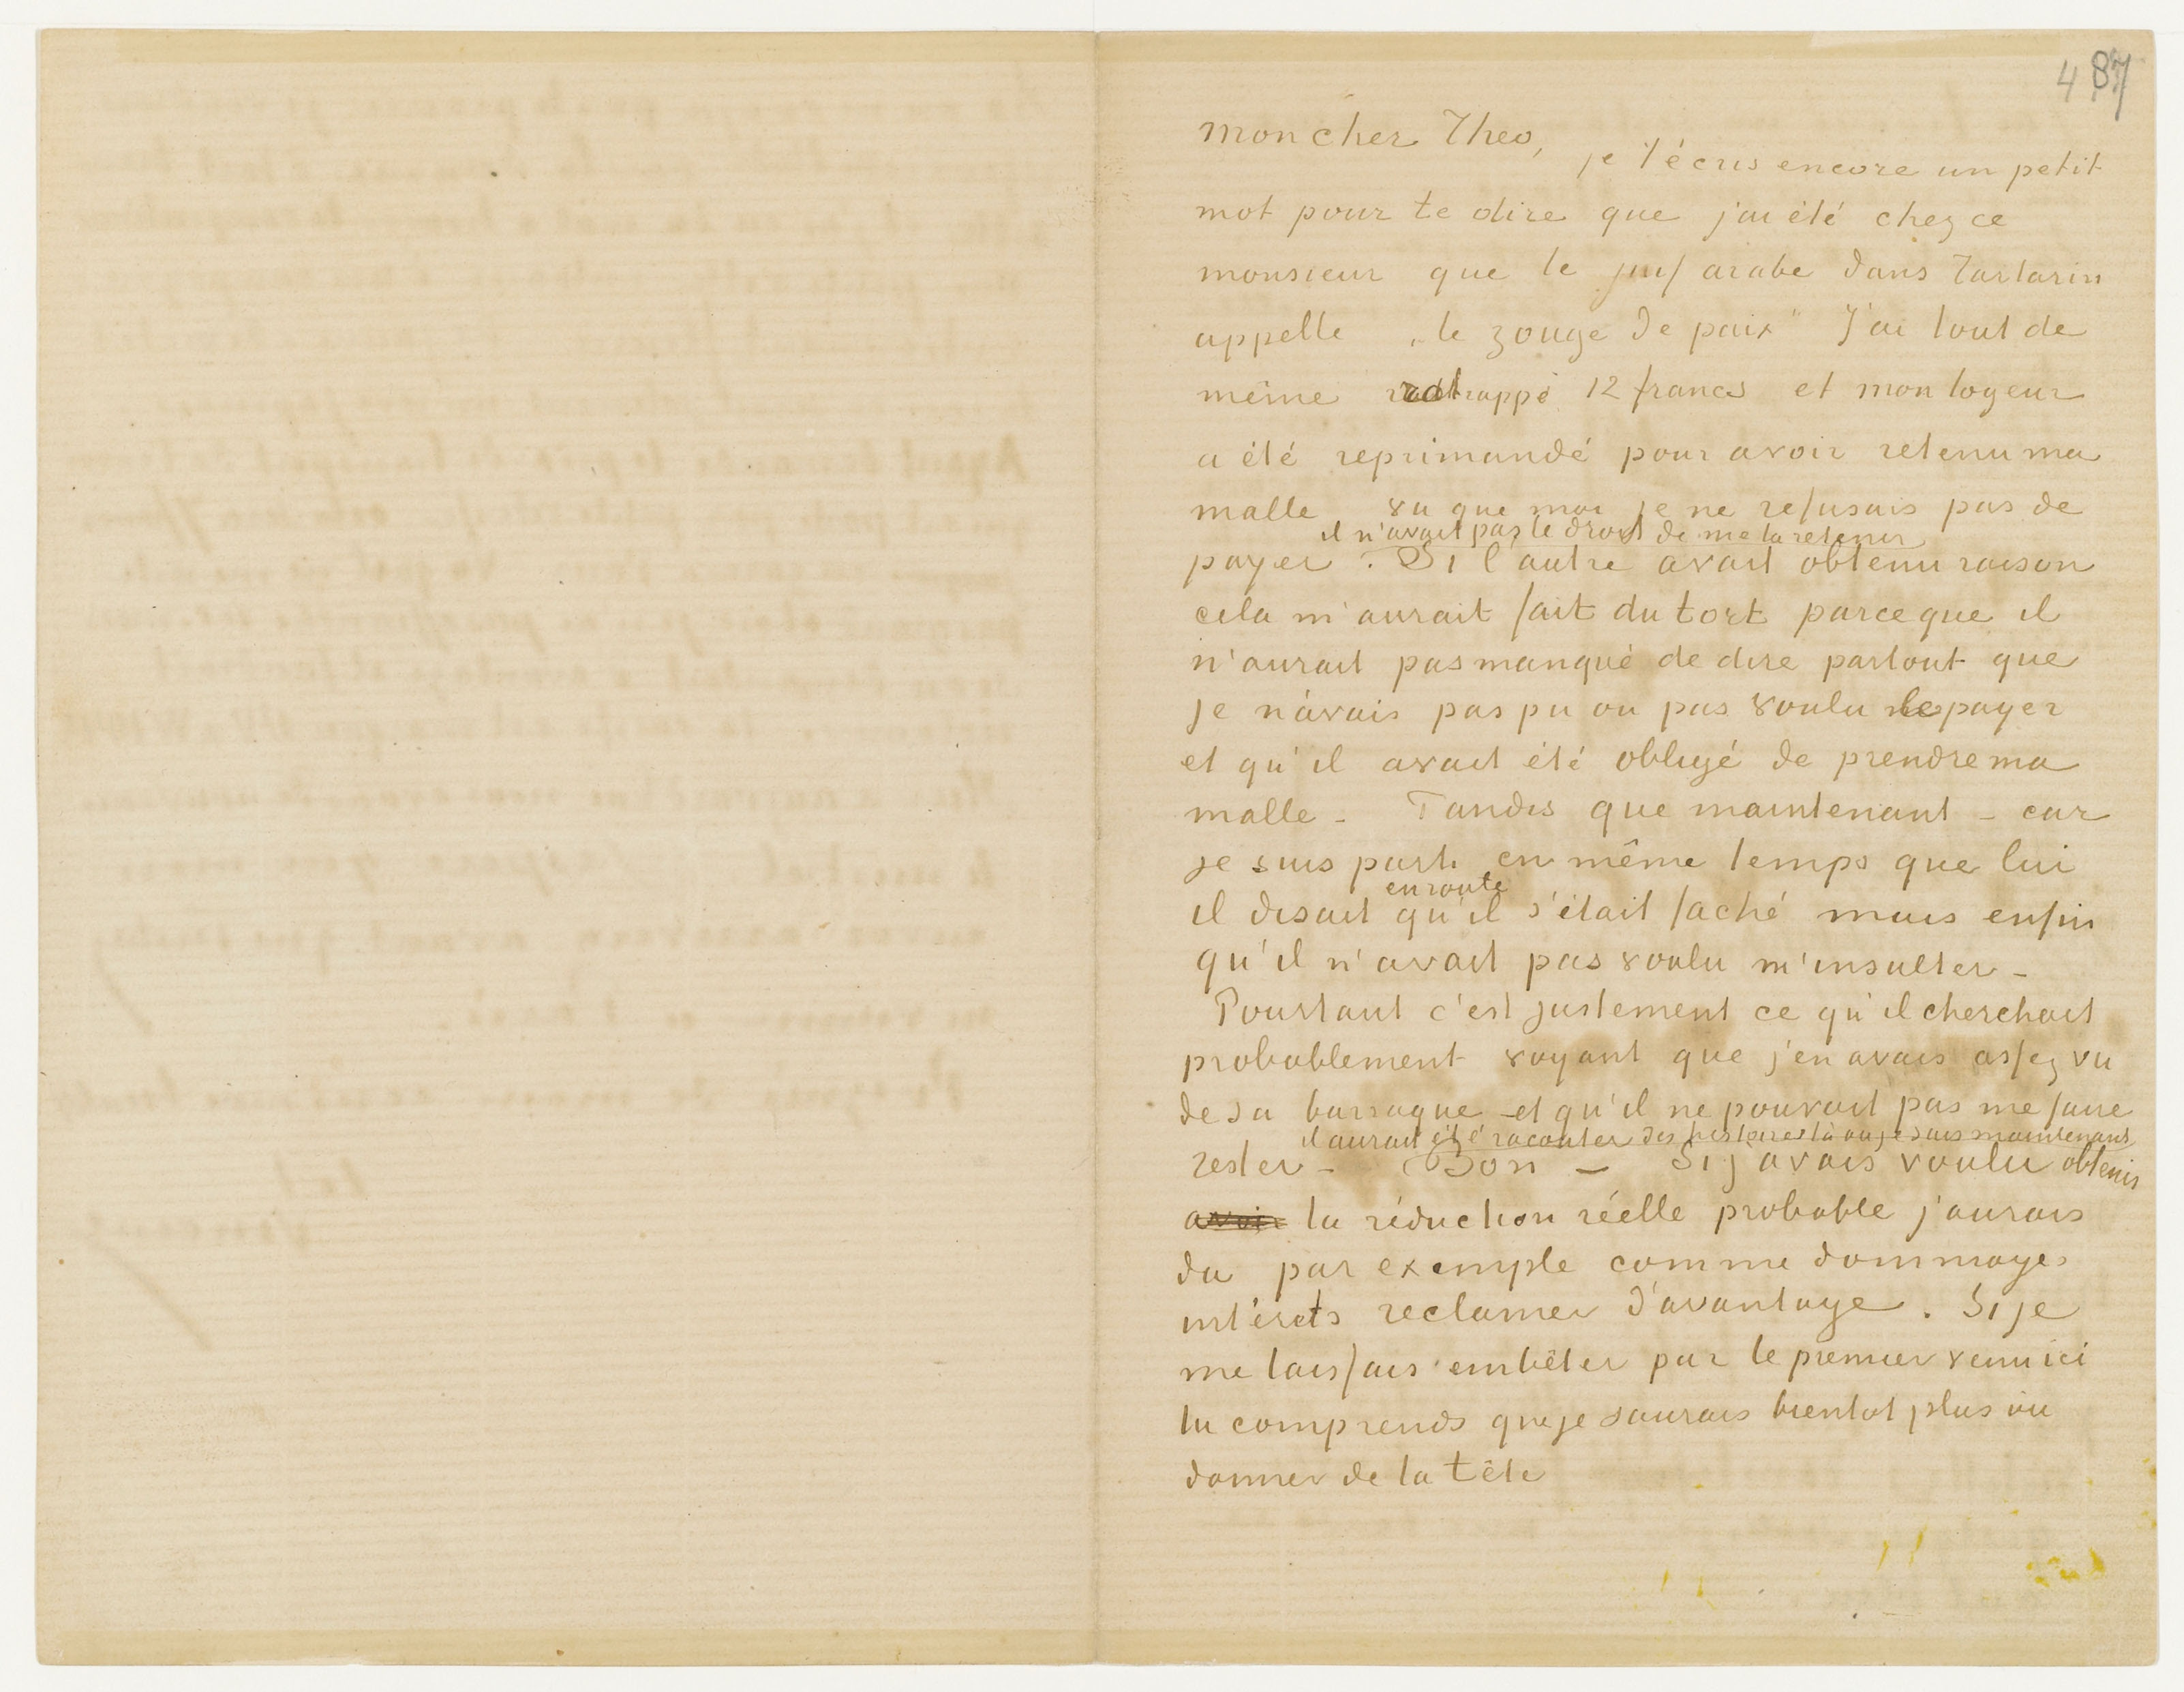 487
mon cher Theo,
je t'écris encore un petit
mot pour te dire que j'ai été chez ce
monsieur que le juif arabe dans Tartarin
appelle „le zouge de paix" J'ai tout de
même rattrappé 12 francs et mon logeur
a été reprimandé pour avoir retenu ma
malle vu que moi je ne refusais pas de
il n'avait pas le droit de me la retenir
payer. Si l'autre avait obtenu raison
cela m'aurait fait du tort parceque il
n'aurait pas manqué de dire partout que
je n'avais pas pu ou pas voulu le payer
et qu'il avait été obligé de prendre ma
malle – Tandis que maintenant – car
je suis parti en même temps que lui
en route
il disait qu'il s'était faché mais enfin
qu'il n'avait pas voulu m'insulter –
Pourtant c'est justement ce qu'il cherchait
probablement voyant que j'en avais assez vu
de sa barraque et qu'il ne pouvait pas me faire
il aurait été raconter des histoires là où je suis maintenant
rester – Bon – Si j'avais voulu obtenir
avoir la réduction réelle probable j'aurais
du par exemple comme dommages
intérets reclamer d'avantage. Si je
me laissais embêter par le premier venu ici
tu comprends que je saurais bientot plus où
donner de la tête